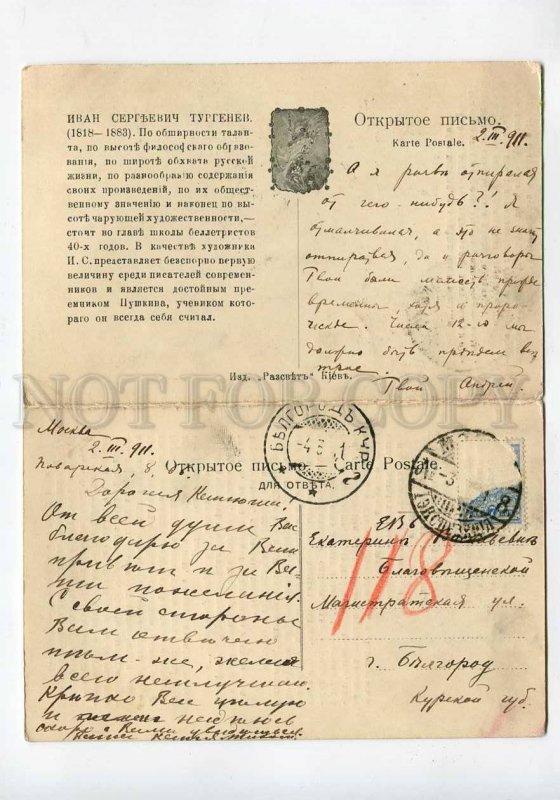 ИВАН СЕРГѢЕВИЧ ТУРГЕНЕВ.
(1818—1883). По обширности талан-
та, по высотѣ философскаго образо-
ванія, по широтѣ обхвата русской
жизни, по разнообразію содержанія
своих произведеній, по их обществ-
венному значению и наконец по вы-
сотѣ чарующей художественности,—
стоит во главѣ школы беллетристов
40-х годов. В качествѣ художника
И. С. представляет безспорно первую
величину среди писателей современ-
ников и является достойным пре-
емником Пушкина, учеником кото-
раго он всегда себя считал.
Открытое письмо.
Karte Postale.
2.III.911.
А я развѣ отпиралась
от чего-нибудь?! Я
отмалчивалась, а это не значит
отпираться, да и разговоры
Твои были
временны хотя и проро-
ческие. Числа 12-го мы
должно быть приѣдем
Твой Андрей.
Изд. „Разсвѣтъ“ Кіевъ.
NOT FOR COPY
Москва
2.III.911.
Поварская, 8
Открытое письмо. Carte Postale.
ДЛЯ ОТВѢТА.
БѢЛГОРОДЪ КУР.
8
118
Дорогая
От всей души Вас
благодарю за Ваш
привѣт и за Ва-
ши пожелания.
С своей стороны
Вам отвѣчаю
тѣм-же, желая
всего наилучшаго.
Крѣпко Вас цѣлую
и надѣюсь
скоро с Вами увидѣться.
ЕВБ
Екатеринѣ
Благовѣщенской
Магистратская ул.
г. Бѣлгород
Курской губ.